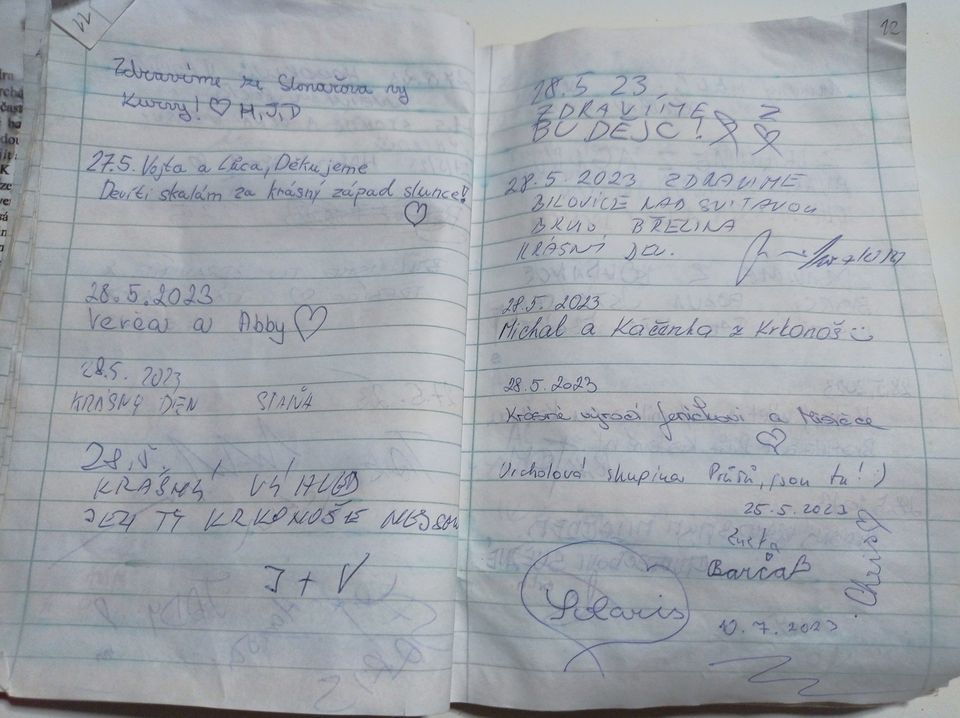 11
Zdravíme ze Slonařova vy
Kurvy! ♡ H, J, D
27.5. Vojta a Lůca, Děkujeme
Devíti skalám za krásný západ slunce!
♡
28.5.2023
Verča a Abby ♡
28.5. 2023
KRÁSNÝ DEN STAŇA
28.5.
KRÁSNÝ VÝHLED
JEN TY KRKONOŠE NEJSOU
J + V
12
28.5 23
ZDRAVÍME Z
BUDĚJC!
28.5.2023 ZDRAVÍME
BILOVICE NAD SVITAVOU
BRNO, BŘEZINA
KRÁSNÝ DEN.
28.5.2023
Michal a Kačenka z Krkonoš
28.5.2023
Krásné výročí Jeníčkovi a
♡
Vrcholová skupina jsou tu! :)
25.5.2023
Barča
Chris
Solaris
10.7.2023